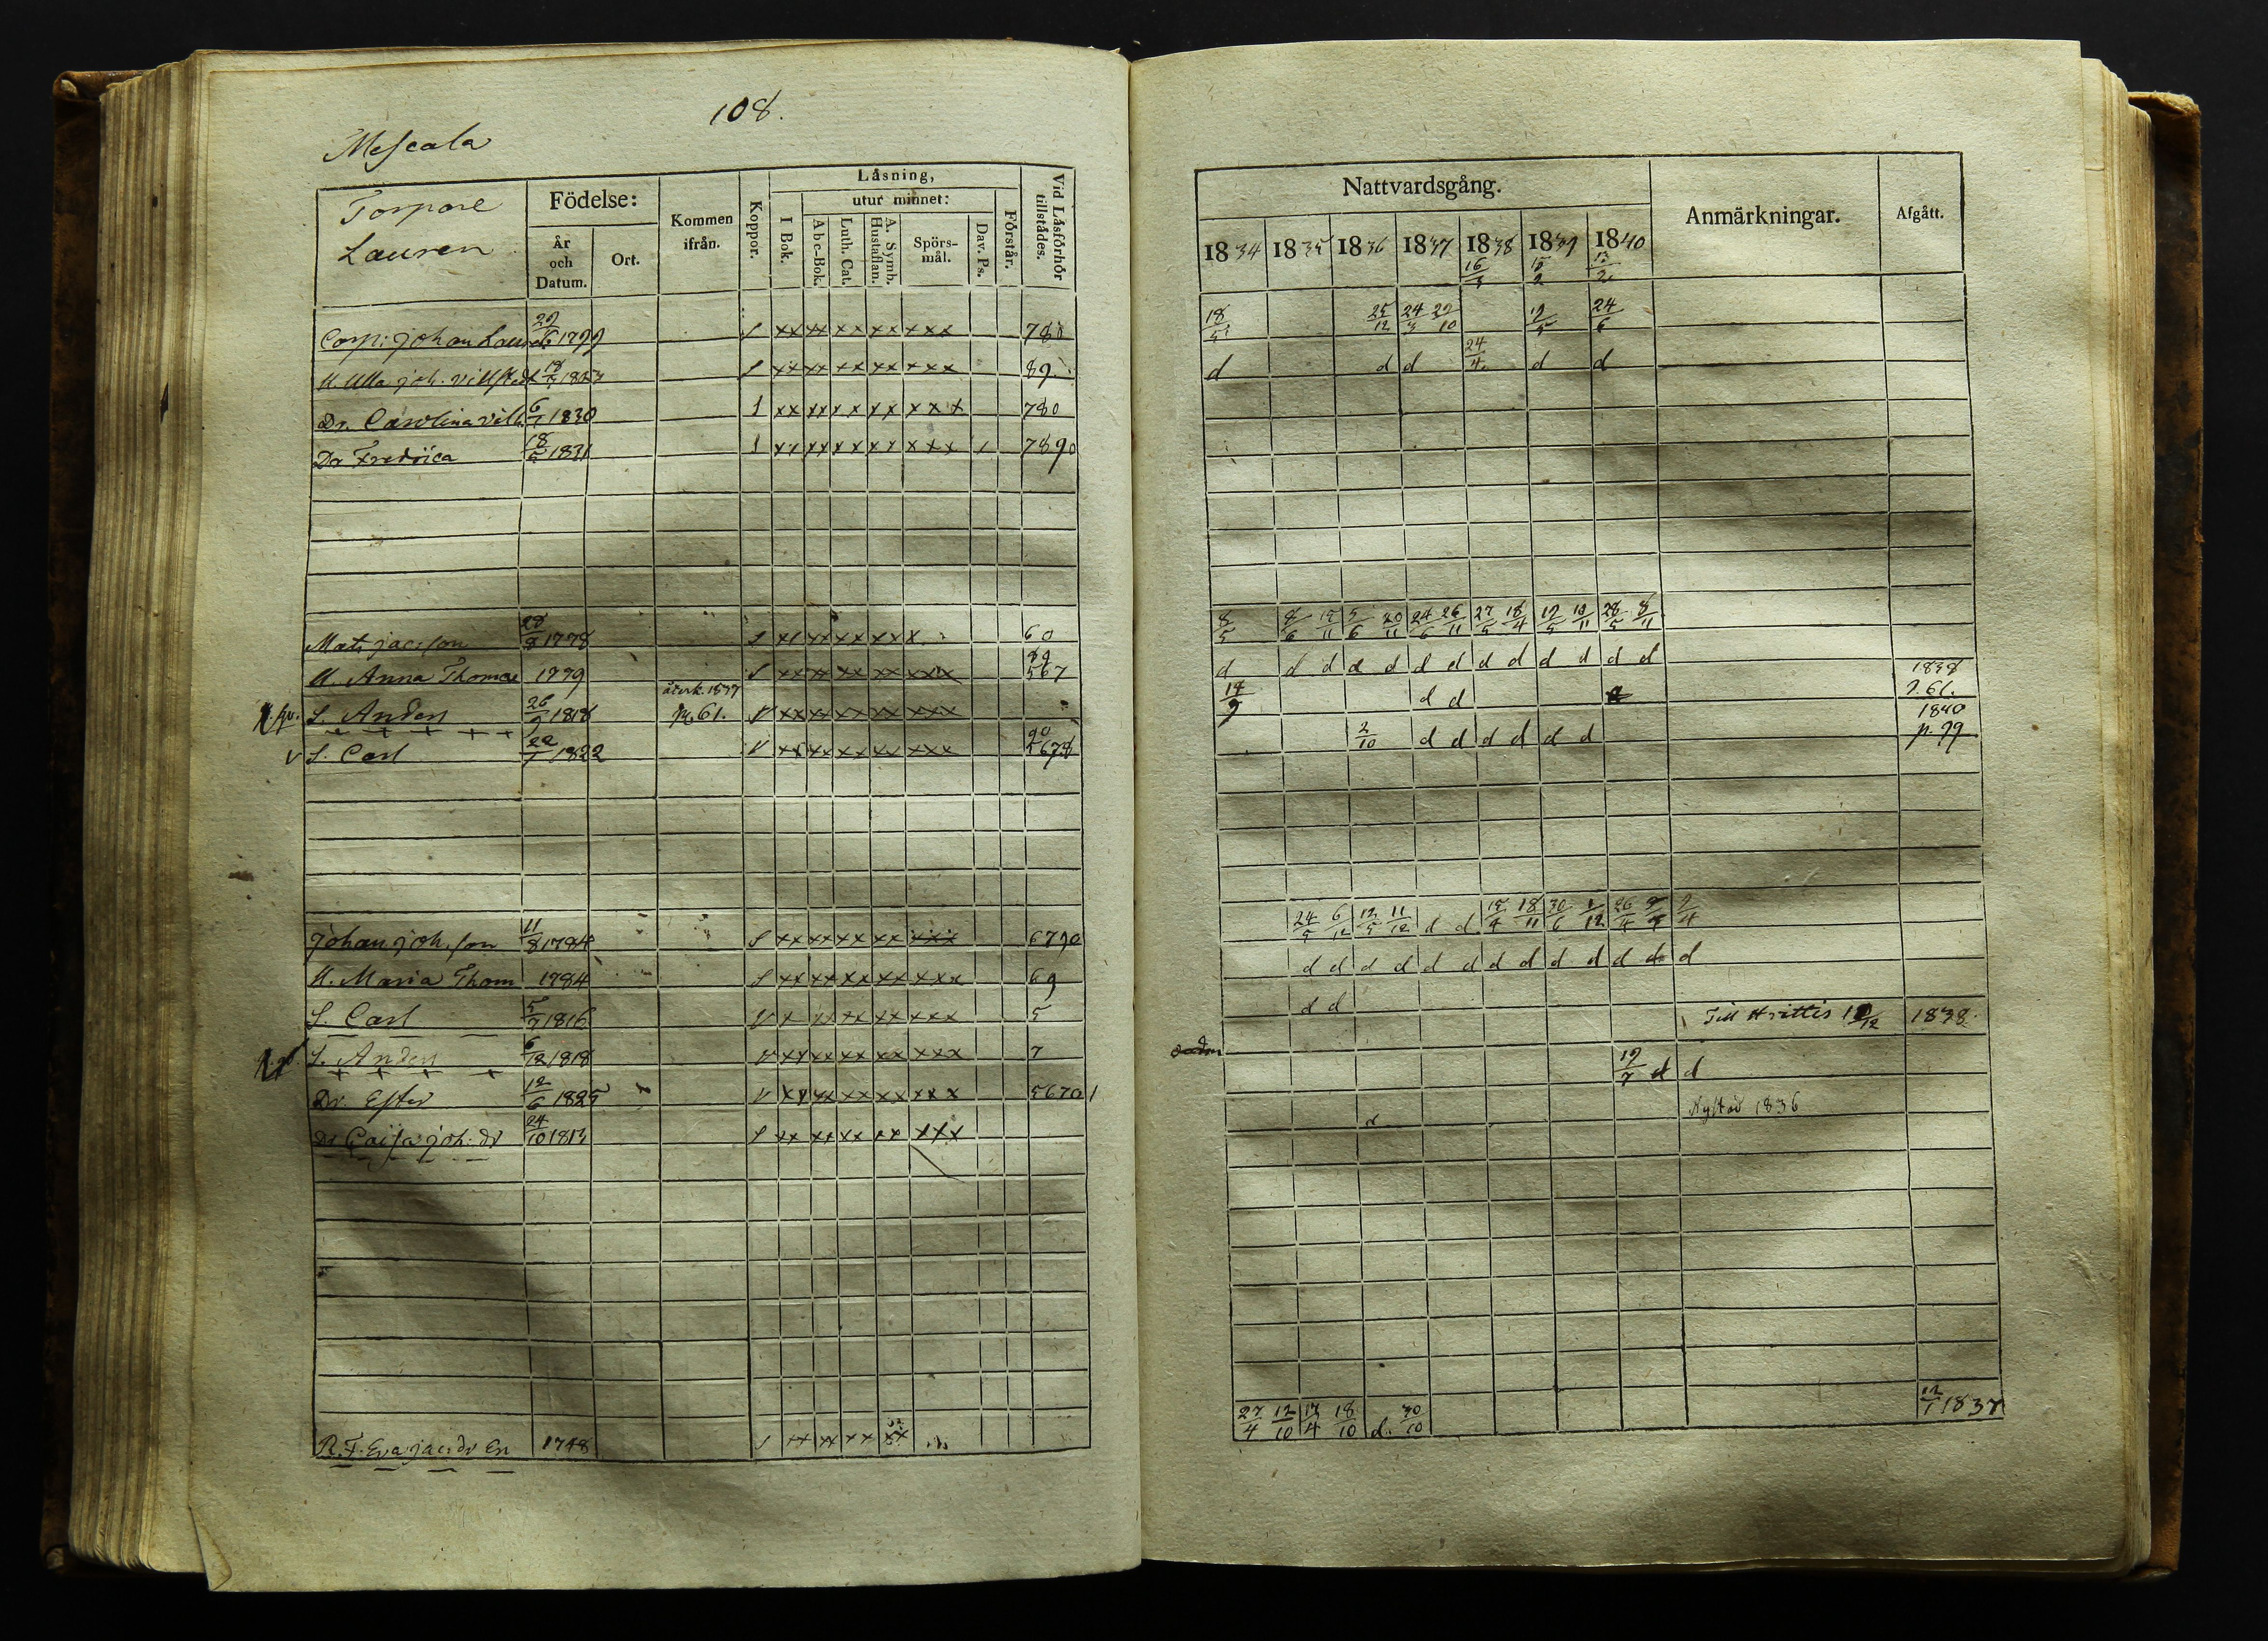 108.
Mescala
Torpare
Lauren
Födelse:
År
och
Datum.
Ort.
Kommen
ifrån.
Koppor.
Låsning,
I Bok.
utur minnet:
Abc-Bok.
Luth. Cat.
A. Symb.
Hustaflan.
Spörs-
mål.
Dav. Ps.
Förstår.
Vid Låsförhör
tillstådes.
Corp: Johan Lauren 29/6 1799 S xx xx xx xx xxx 780
U. Ulla joh. S xx xx xx xx xxx 89
Dr. Carolina Vilh. 6/1 1830 S xx xx xx xx xxx 780
Dr Fredrica 18/5 1831 S xx xx xx xx xxx 7890
Mats jacsson 28/8 1778 S xx xx xx xx x 60
U. Anna Thomae 1779 S xx xx xx xx xxx 89 567
S. Anders 26/9 1818 återk. 1837 p. 61. V xx xx xx xx xxx
V S. Carl 22/7 1822 V xx xx xx xx xxx 90 5678
Johan joh.son 11/8 1784 S xx xx xx xx xxx 6790
U. Maria Thom 1784 S xx xx xx xx xxx 69
S. Carl 5/7 1816 V x xx xx xx xxx 5
S. Anders 6/12 1818 V xx xx xx xx xxx 7
Dr. Ester 12/6 1825 V xx xx xx xx xxx 5670 1
Dr Caisa joh: dr 24/10 1813 S xx xx xx xx xxx
R. F. Eva jac. dr En 1748 S xx xx xx xx
Nattvardsgång.
Anmärkningar.
Afgått.
1834 1835 1836 1837 1838 1839 1840
18/5 25/12 24/3 29/10 16/3 12/5 24/6
d d d 24/4 d d
8/5 8/6 15/11 5/6 20/11 24/6 26/11 27/5 18/4 12/5 10/11 28/5 8/11
d d d d d d d d d d d d d
14/9 d d 1838 p. 61.
2/10 d d d d d d 1840 p. 99
24/5 6/12 12/5 11/12 d d 15/4 18/11 30/6 1/12 26/4 2/4
d d d d d d d d d d d d d
d d Till Hvittis 1838.
19/7 d d
d Nystad 1836
27/4 12/10 17/4 18/10 d. 30/10 1837